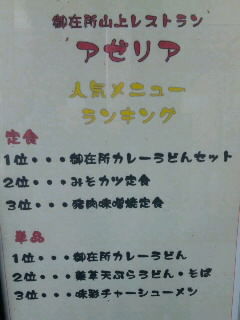 御在所山上レストラン
アゼリア
人気メニュー
ランキング
定食
1位・・・御在所カレーうどんセット
2位・・・みそカツ定食
3位・・・猪肉味噌焼定食
単品
1位・・・御在所カレーうどん
2位・・・薬草天ぷらうどん・そば
3位・・・味彩チャーシューメン